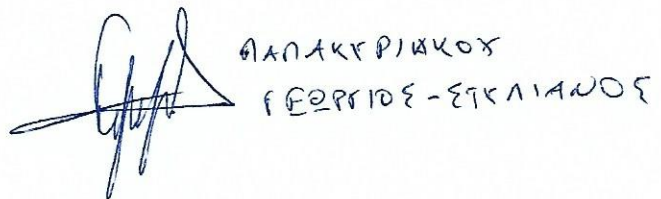 ΠΑΠΑΚΥΡΙΑΚΟΥ
ΓΕΩΡΓΙΟΣ-ΣΤΥΛΙΑΝΟΣ